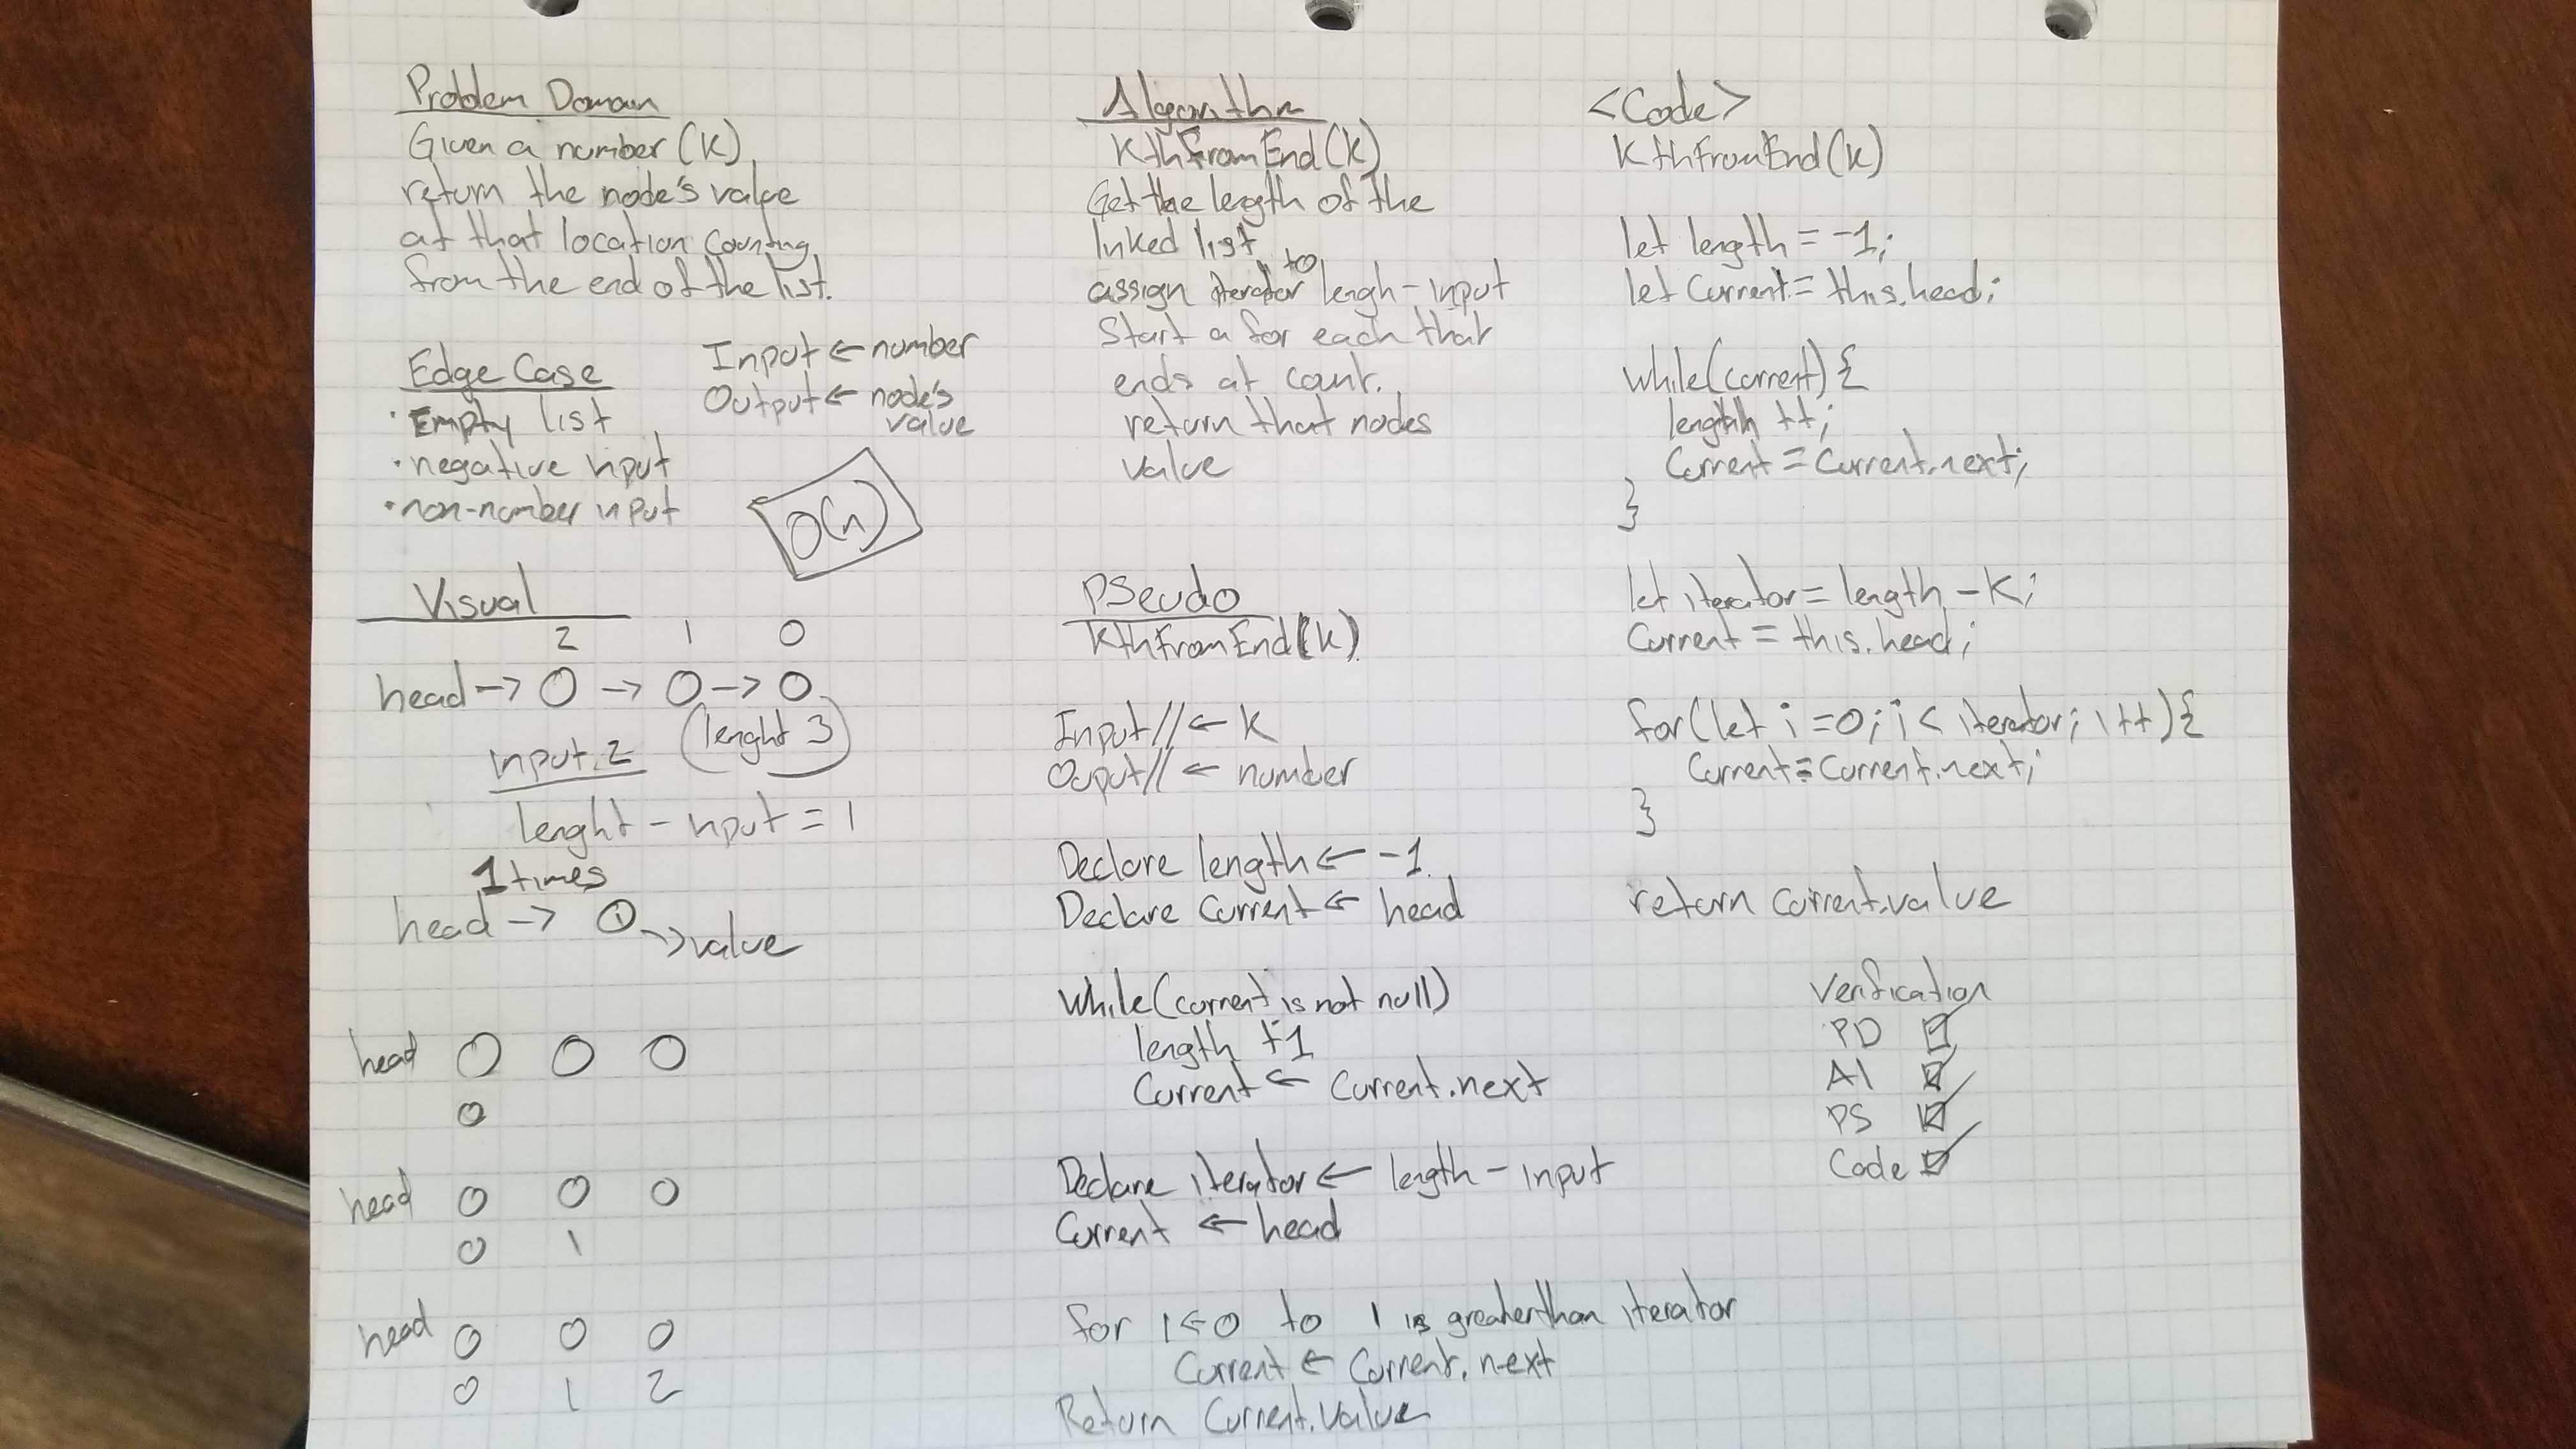 Problem Domain
Given a number (k)
return the node's value
at that location counting
from the end of the list.
Input ← number
Output ← node's
value
Edge Case
• Empty list
• negative input
• non-number input
O(n)
Visual
2 1 0
head -> O -> O -> O
input 2 (lenght 3)
lenght - input = 1
1 times
head -> O -> value
head O O O
0
head O O O
0 1
head O O O
0 1 2
Algorithm
KthFromEnd(k)
Get the length of the
linked list
assign iterator to lengh - input
start a for each that
ends at count.
return that nodes
value
PSeudo
KthFromEnd(k)
Input // ← k
output // ← number
Declare length ← -1
Declare Current ← head
while(current is not null)
length +1
Current ← Current.next
Declare iterator ← length - input
Current ← head
for i ← 0 to i is greater than iterator
Current ← Current.next
Return Current.value
<Code>
KthFromEnd(k)
let length = -1;
let current = this.head;
while(current) {
length ++;
Current = Current.next;
}
let iterator = length - k;
Current = this.head;
for(let i = 0; i < iterator; i++) {
Current = Current.next;
}
return current.value
Verification
PD ☑
Al ☑
PS ☑
Code ☑